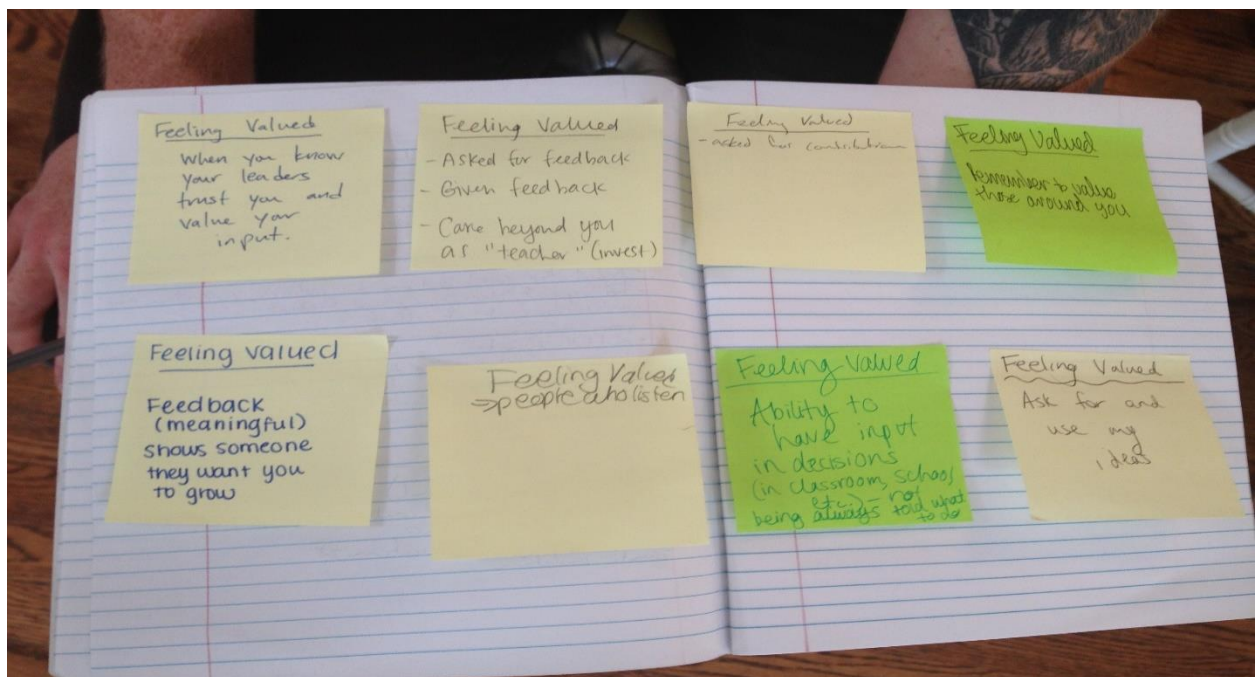 Feeling Valued
When you know
your leaders
trust you and
value your
input.
Feeling Valued
- Asked for feedback
- Given feedback
- Care beyond you
as "teacher" (invest)
Feeling Valued
- asked for contribution
Feeling Valued
Remember to value
those around you
Feeling valued
Feedback
(meaningful)
shows someone
they want you
to grow
Feeling Valued
→ people who listen
Feeling Valued
Ability to
have input
in decisions
(in classroom, school,
etc.) - not
being always told what
to do
Feeling Valued
Ask for and
use my
ideas